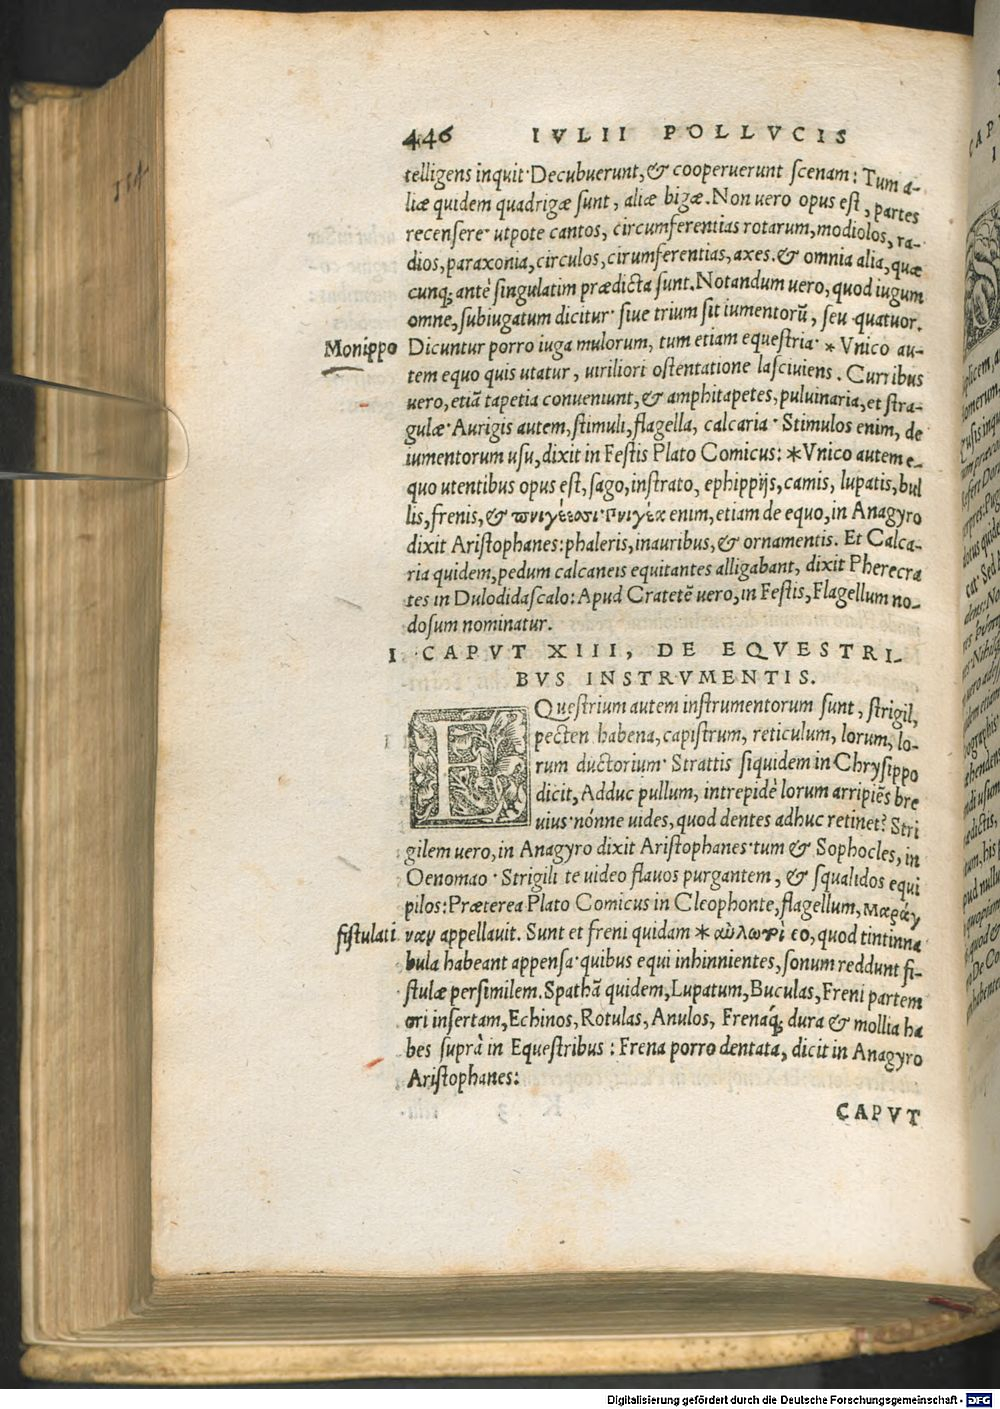 446 IVLII POLLVCIS
telligens inquit· Decubuerunt, & cooperuerunt scenam: Tum a-
liæ quidem quadrigæ sunt, aliæ bigæ. Non uero opus est, partes
recensere· utpote cantos, circumferentias rotarum, modiolos, ra-
dios, paraxonia, circulos, cirumferentias, axes. & omnia alia, quæ
cunq; antè singulatim prædicta sunt. Notandum uero, quod iugum
omne, subiugatum dicitur· siue trium sit iumentorũ, seu quatuor.
Monippo Dicuntur porro iuga mulorum, tum etiam equestria· * Vnico au-
tem equo quis utatur, uiriliori ostentatione lasciuiens. Curribus
uero, etiã tapetia conueniunt, & amphitapetes, puluinaria, et stra-
gulæ· Aurigis autem, stimuli, flagella, calcaria· Stimulos enim, de
iumentorum usu, dixit in Festis Plato Comicus: * Vnico autem e-
quo utentibus opus est, sago, instrato, ephippijs, camis, lupatis, bul
lis, frenis, & πνιγεῦσι· Πνιγέα enim, etiam de equo, in Anagyro
dixit Aristophanes: phaleris, inauribus, & ornamentis. Et Calca-
ria quidem, pedum calcaneis equitantes alligabant, dixit Pherecra
tes in Dulodidascalo: Apud Cratetē uero, in Festis, Flagellum no-
dosum nominatur.
I · CAPVT XIII, DE EQVESTRI-
BVS INSTRVMENTIS.
EQuestrium autem instrumentorum sunt, strigil,
pecten habena, capistrum, reticulum, lorum, lo-
rum ductorium· Strattis siquidem in Chrysippo
dicit, Adduc pullum, intrepidè lorum arripiēs bre
uius· nónne uides, quod dentes adhuc retinet? Stri
gilem uero, in Anagyro dixit Aristophanes· tum & Sophocles, in
Oenomao· Strigili te uideo flauos purgantem, & squalidos equi
pilos: Præterea Plato Comicus in Cleophonte, flagellum, μαράγ
fistulati ναν appellauit. Sunt et freni quidam * αὐλωτοὶ εο, quod tintinna
bula habeant appensa· quibus equi inhinnientes, sonum reddunt fi-
stulæ persimilem. Spathã quidem, Lupatum, Buculas, Freni partem
ori insertam, Echinos, Rotulas, Anulos, Frenaq́; dura & mollia ha
bes suprà in Equestribus: Frena porro dentata, dicit in Anagyro
Aristophanes:
CAPVT
114
Digitalisierung gefördert durch die Deutsche Forschungsgemeinschaft - DFG